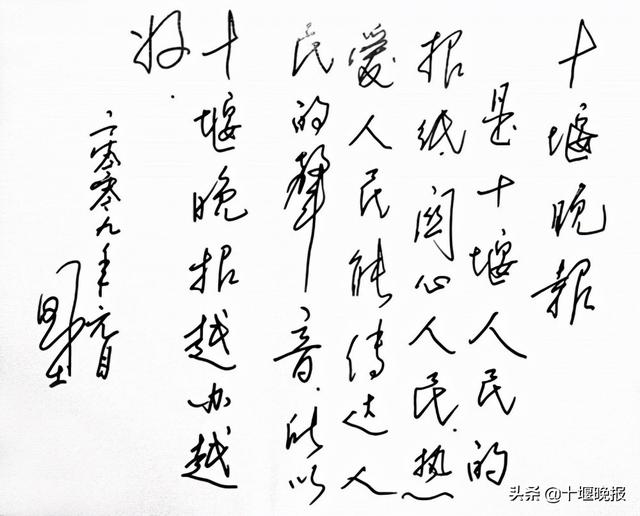 十堰晚報
是十堰人民的
报纸.関心人民.热
愛人民能傳达人
民的聲音.所以
十堰晚报越办越
好.
二零零九年元月
头条 @十堰晚报